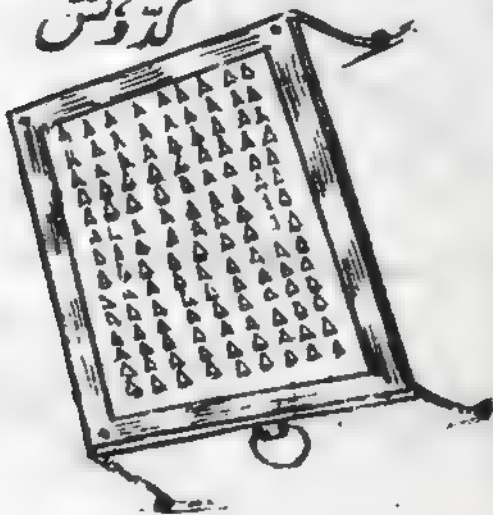 کدّوکش